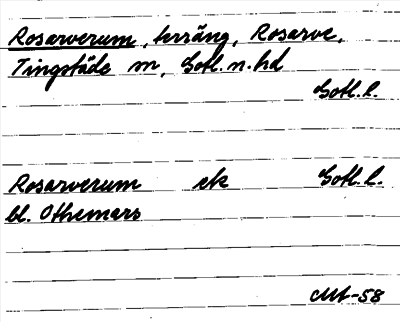 Rosarverum, terräng, Rosarve,
Tingstäde sn, Gotl. n. hd
Gotl. l.
Rosarverum ek Gotl. l.
bl. Othemars
Mt-58